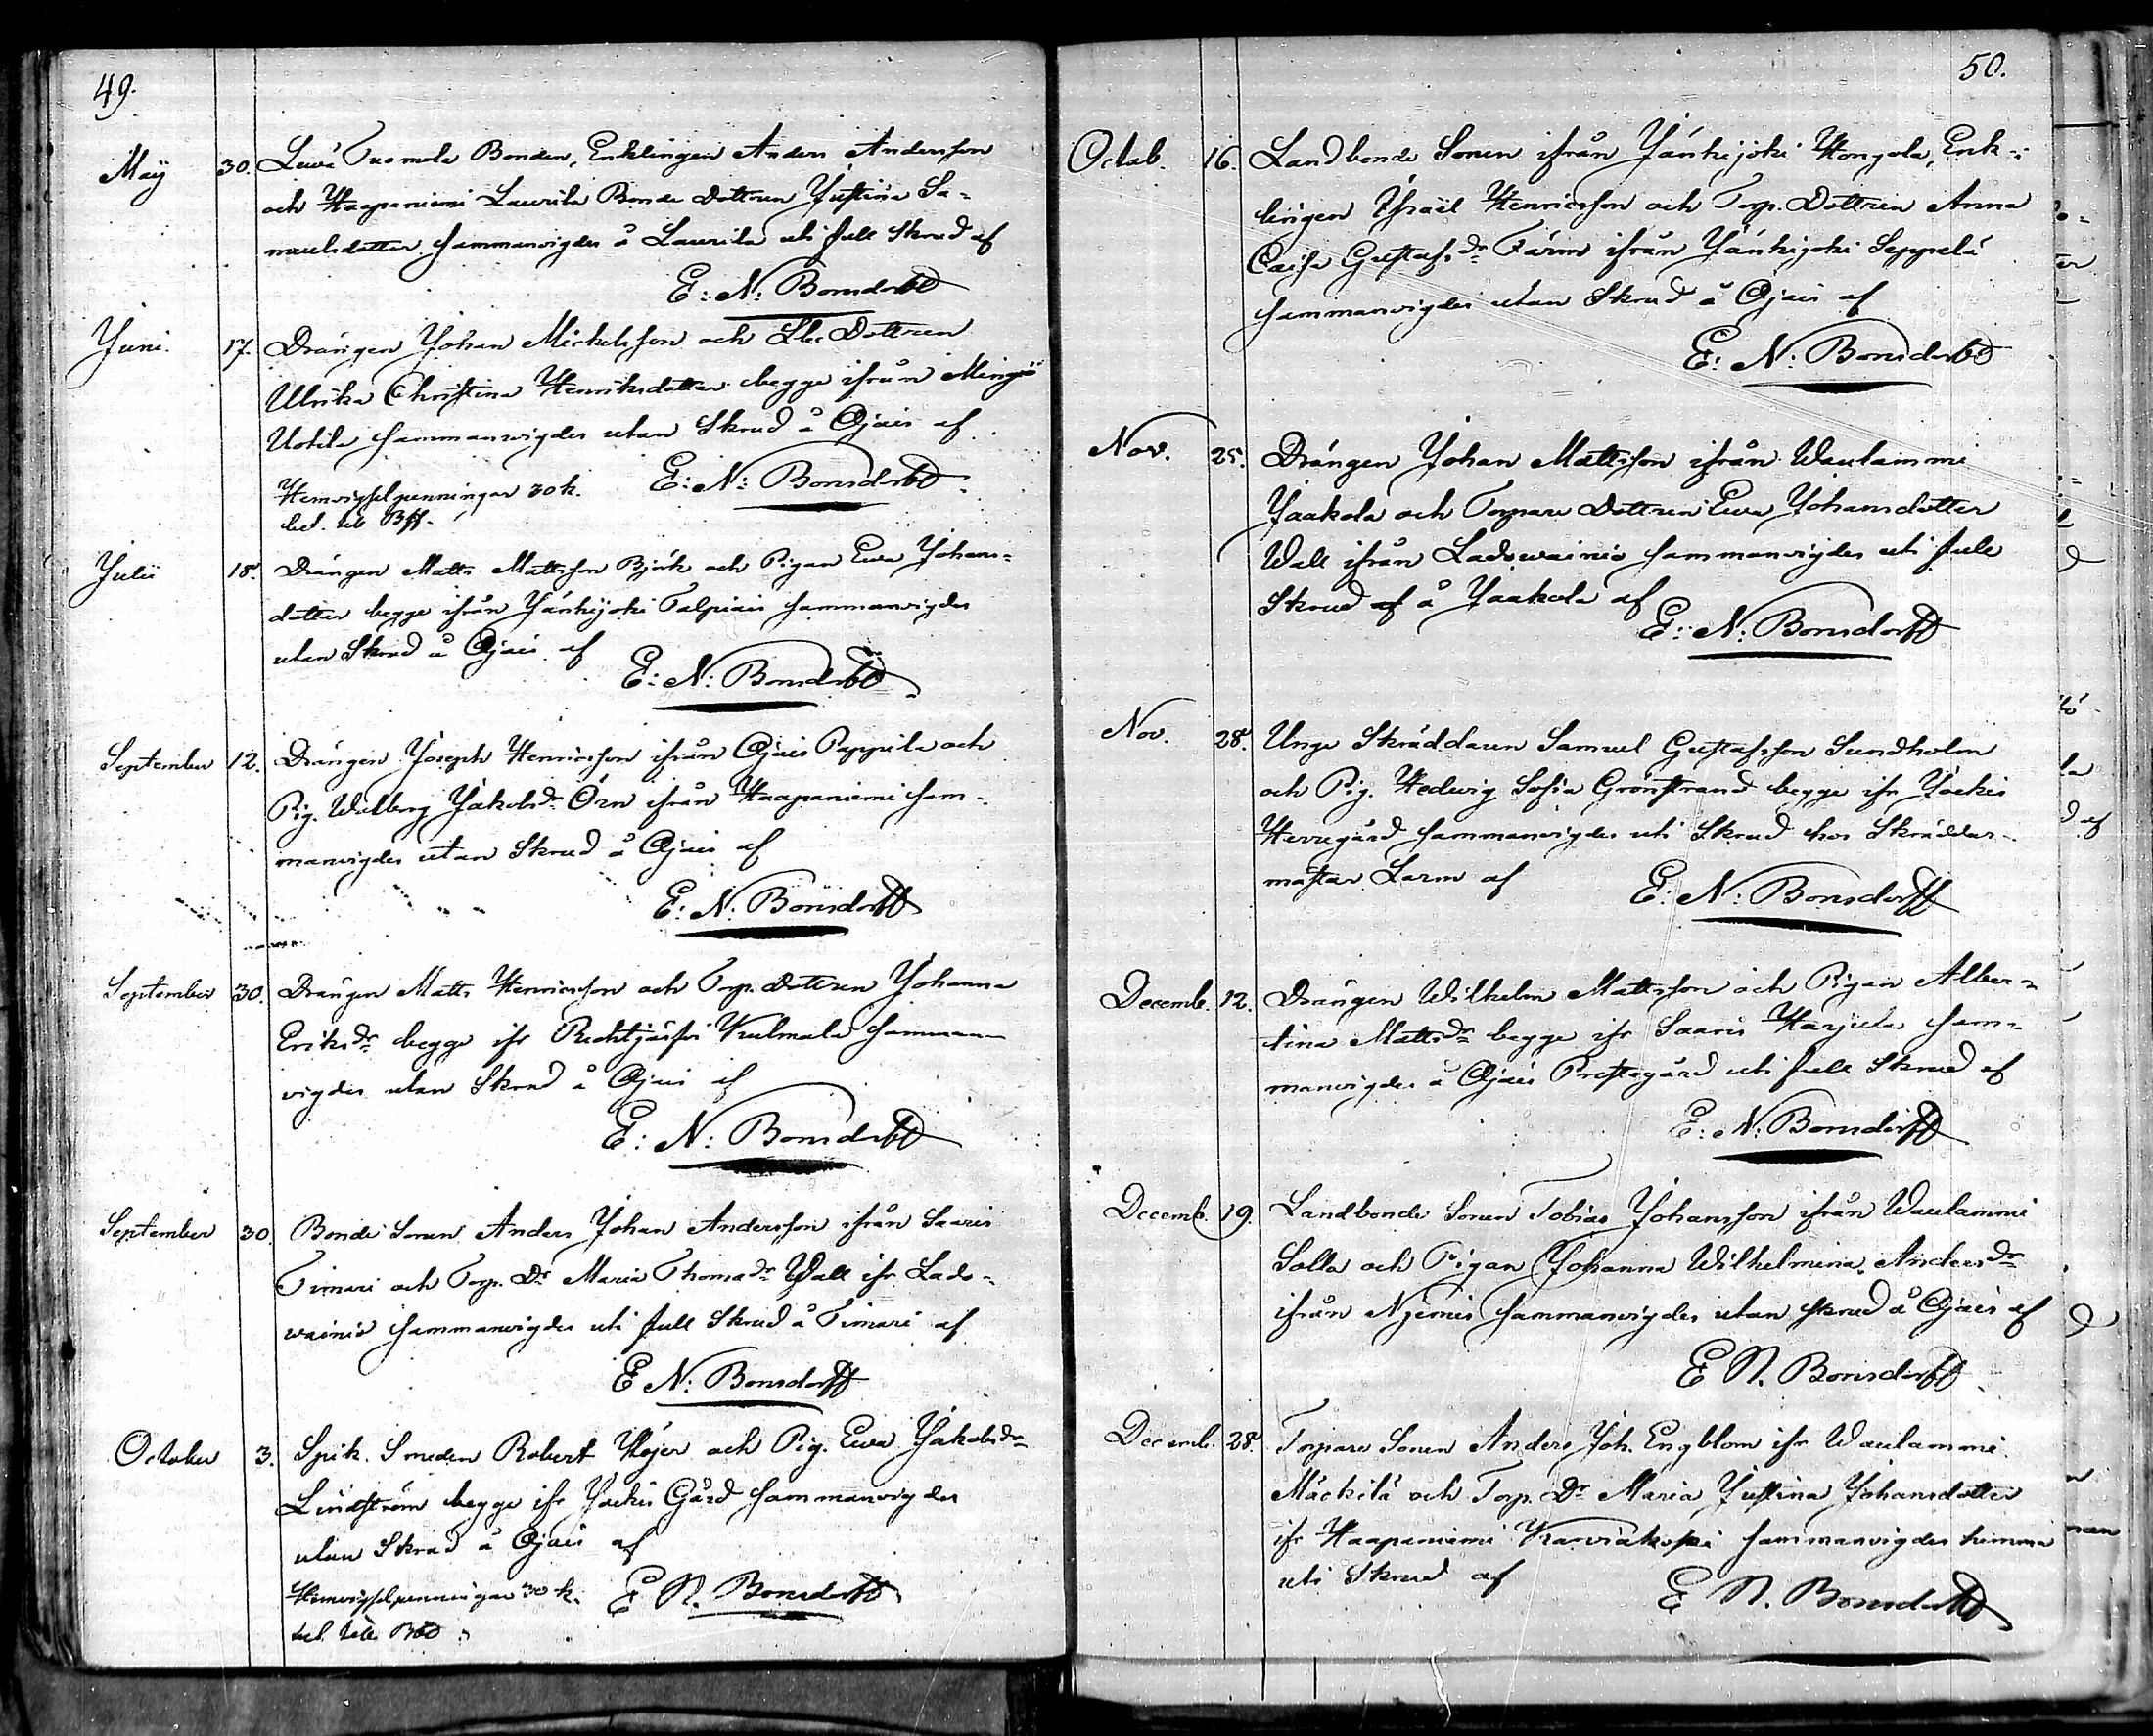 49.
May 30. Lewä Tuomola Bonden, Enklingen Anders Andersson
och Haapaniemi Laurila Bonde Dottren Justina Sa-
muelsdotter sammanvigdes å Laurila uti full Skrud af
E: N: Bonsdorff
Juni. 17. Drängen Johan Michelsson och Dottren
Ulrika Christina Henriksdotter begge ifrån
Uotila sammanvigdes utan Skrud å Ojais af
Hemvigselpenningar 30 k. E: N: Bonsdorff
bet. till Bff.
Julii 18. Drängen Matts Mattsson Björk och Pigan Ewa Johans-
dotter begge ifrån Jänhijoki Talpiais sammanvigdes
utan Skrud å Ojais af
E: N: Bonsdorff
September 12. Drängen Joseph Henricsson ifrån Ojais Pappila och
Pig. Walborg Jakobsdr Örn ifrån Haapaniemi sam-
manvigdes utan Skrud å Ojais af
E: N: Bonsdorff
September 30. Drängen Matts Henricsson och Torp. Dottren Johanna
Eriksdr begge ifr Kulmala samman
vigdes utan Skrud å Ojais af
E: N: Bonsdorff
September 30. Bonde Sonen Anders Johan Andersson ifrån Saaris
Timari och Torp. Dr Maria Thomadr Wall ifr. Lado-
wainio sammanvigdes uti full Skrud å Timari af
E N: Bonsdorff
October 3. Spik. Smeden Robert Höjer och Pig. Ewa Jakobsdr
Lindström begge ifr Jockis Gård sammanvigdes
utan Skrud å Ojais af
Hemvigselpenningar 30 k. E N. Bonsdorff
bet. till Bff
50.
Octob. 16. Landbonde Sonen ifrån Jänhijoki Hongola, Enk-
lingen Israël Henricsson och Torp. Dottren Anna
Caisa Gustafsdr Färm ifrån Jänhijoki Seppelä
sammanvigdes utan Skrud å Ojais af
E: N: Bonsdorff
Nov. 25. Drängen Johan Mattsson ifrån Waulammi
Jaakola och Torpare Dottren Ewa Johansdotter
Wall ifrån Ladowainio sammanvigdes uti full
Skrud af å Jaakola af
E: N: Bonsdorff
Nov. 28. Unge Skräddaren Samuel Gustafsson Sundholm
och Pig. Hedwig Sofia Grönstrand begge ifr Jockis
Herregård sammanvigdes uti Skrud hos Skräddar-
mästar Larm af
E: N: Bonsdorff
Decemb. 12. Drängen Wilhelm Mattsson och Pigan Alber-
tina Mattsdr begge ifr Saaris Harjula sam-
manvigdes å Ojais Prestegård uti full Skrud af
E: N: Bonsdorff
Decemb. 19. Landbonde Sonen Tobias Johansson ifrån Waulammi
Solla och Pigan Johanna Wilhelmina Andersdr
ifrån Njemis sammanvigdes utan skrud å Ojais af
E N. Bonsdorff
Decemb. 28. Torpare Sonen Anders Joh. Engblom ifr Waulammi
Mäckilä och Torp. Dr Maria Justina Johansdotter
ifr Haapaniemi sammanvigdes hemma
uti Skrud af
E N. Bonsdorff